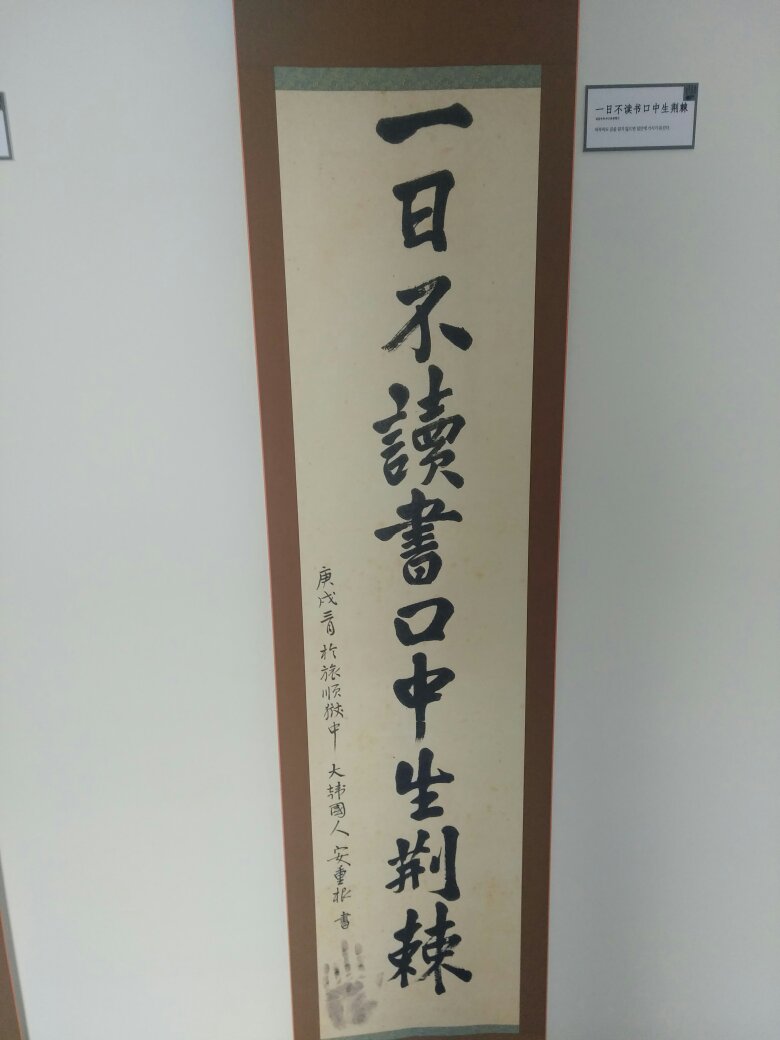 一日不讀書口中生荆棘
庚戌三月 於旅順獄中 大韓國人 安重根 書
一日不读书口中生荆棘